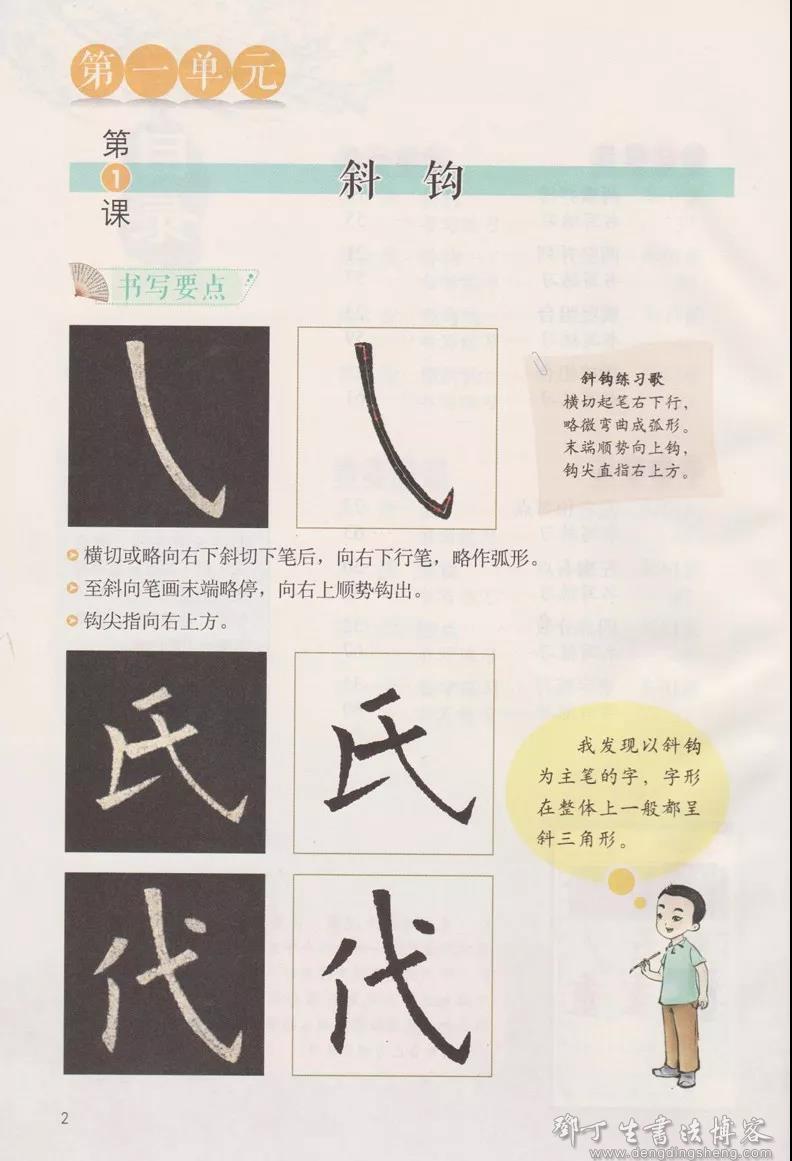 第一单元
第1课
斜钩
书写要点
斜钩练习歌
横切起笔右下行，
略微弯曲成弧形。
末端顺势向上钩，
钩尖直指右上方。
横切或略向右下斜切下笔后，向右下行笔，略作弧形。
至斜向笔画末端略停，向右上顺势钩出。
钩尖指向右上方。
氏
氏
我发现以斜钩
为主笔的字，字形
在整体上一般都呈
斜三角形。
代
代
2
邓丁生書法博客
www.dengdingsheng.com